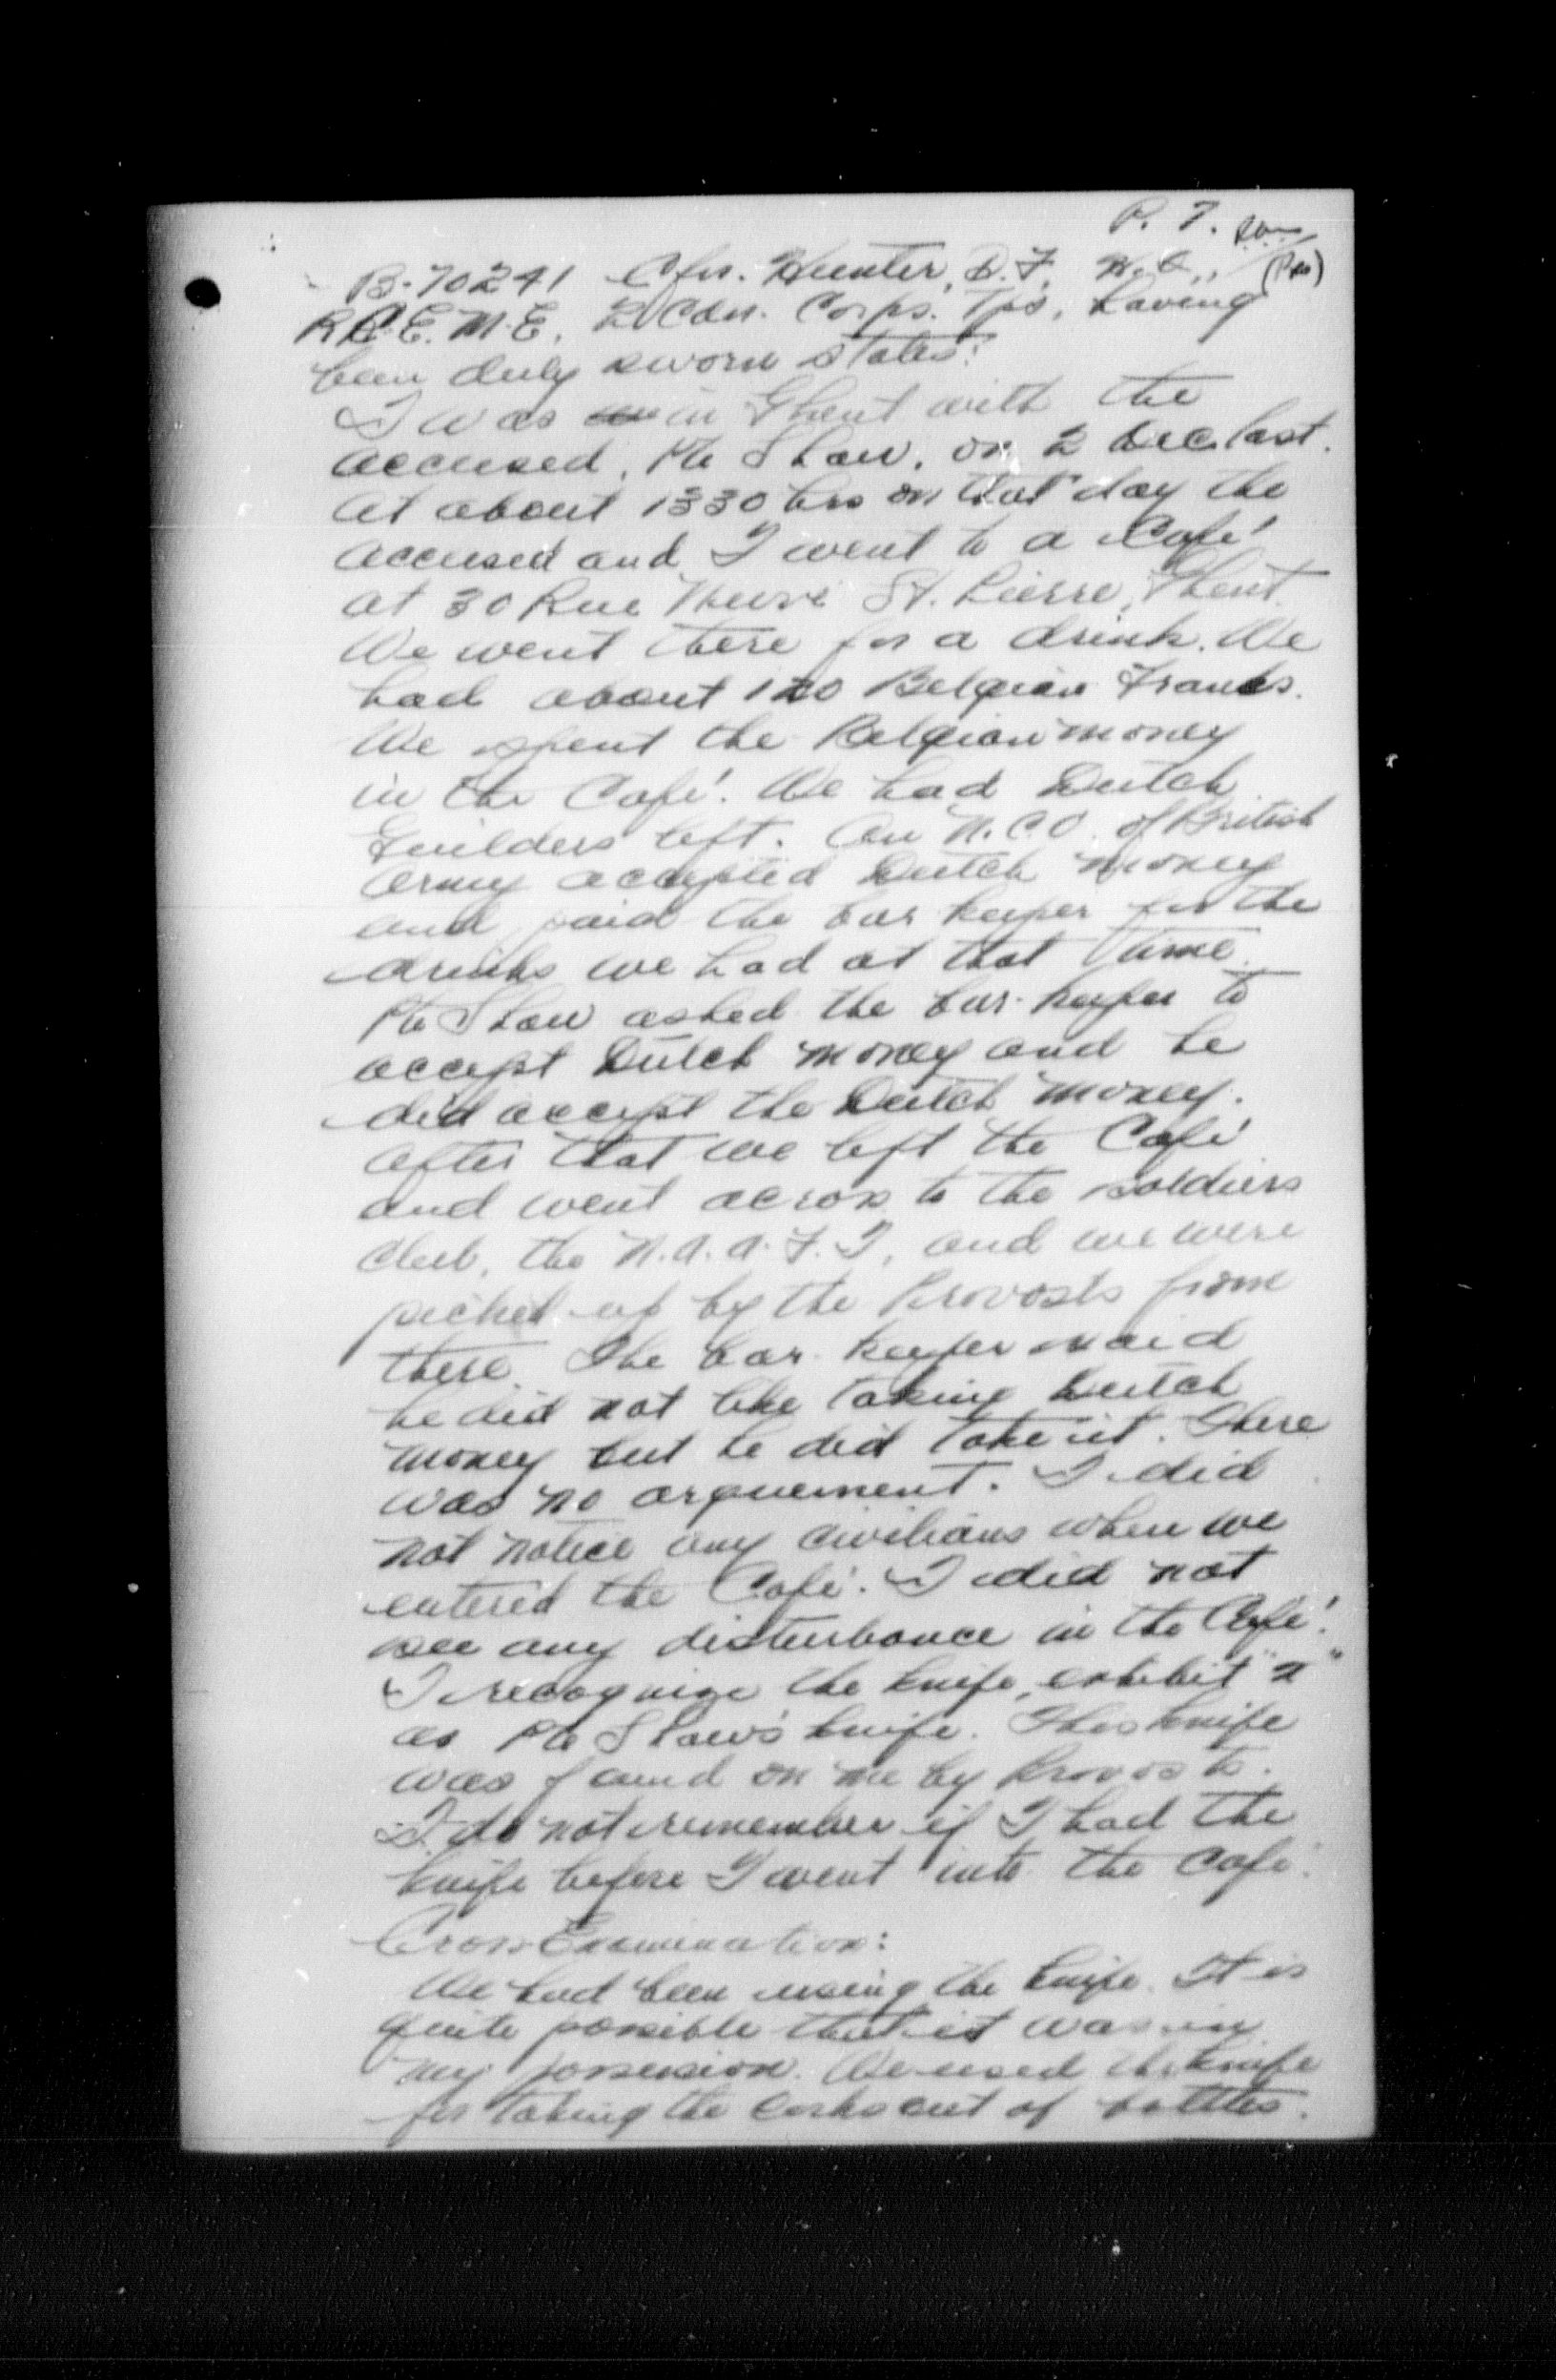 P. 7.
B-70241 Cfn. Hunter, D.F., W.O., (Pro)
R.C.E.M.E. 2 Cdn. Corps. Tps, having
been duly sworn states:
I was in Ghent with the
accused, Pte Shaw, on 2 Dec last.
At about 1330 hrs on that day the
accused and I went to a Café
at 30 Rue Neuve St. Pierre, Ghent.
We went there for a drink. We
had about 120 Belgian Francs.
We spent the Belgian money
in the Café. We had Dutch
Guilders left. An N.C.O. of British
Army accepted Dutch money
and paid the bar keeper for the
drinks we had at that time.
Pte Shaw asked the bar-keeper to
accept Dutch money and he
did accept the Dutch money.
After that we left the Café
and went across to the soldiers
club, the N.A.A.F.I, and we were
picked up by the Provosts from
there. The bar-keeper said
he did not like taking Dutch
money but he did take it. There
was no arguement. I did
not notice any civilians when we
entered the Café. I did not
see any disturbance in the Café.
I recognize the knife, exhibit
as Pte Shaw's knife. This knife
was found on me by Provosts.
I do not remember if I had the
knife before I went into the Café.
Cross Examination:
We had been using the knife. It is
quite possible that it was in
my possession. We used the knife
for taking the corks out of bottles.